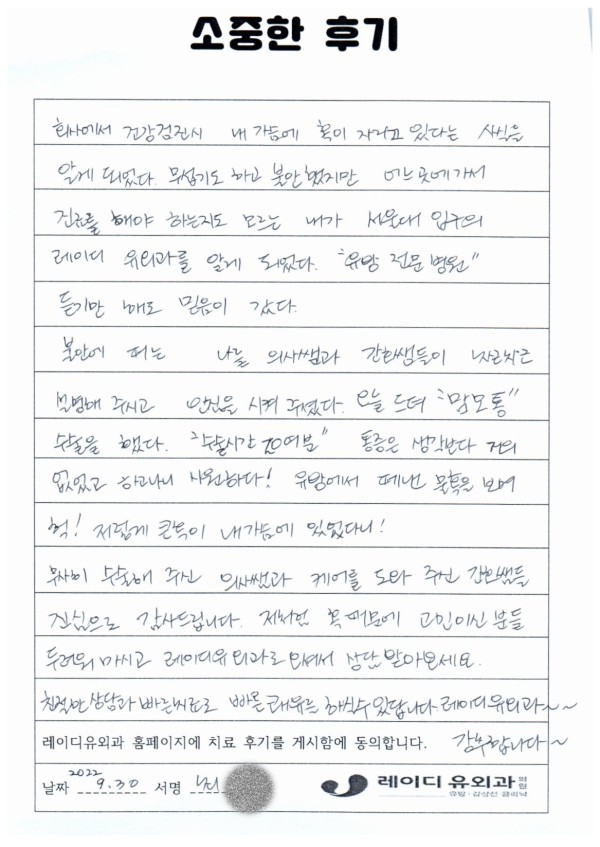 소중한 후기
회사에서 건강검진시 내 가슴에 혹이 자라고 있다는 사실을
알게 되었다. 무섭기도 하고 불안했지만 어느곳에가서
진료를 해야 하는지도 모르는 내가 서울대 입구의
레이디 유외과를 알게 되었다. "유방 전문 병원"
듣기만 해도 믿음이 갔다.
불안에 떠는 나를 의사쌤과 간호쌤들이 차근차근
설명해 주시고 안심을 시켜 주셨다. 오늘 드뎌 "맘모통"
수술을 했다. "수술시간 20여분" 통증은 생각보다 거의
없었고 하고나니 시원하다! 유방에서 떼낸 물혹을 보며
헉! 저렇게 큰혹이 내가슴에 있었다니!
무사히 수술해 주신 의사쌤과 케어를 도와 주신 간호쌤들
진심으로 감사드립니다. 저처럼 혹때문에 고민이신 분들
두려워 마시고 레이디유외과로 오셔서 상담 받아보세요.
친절한 상담과 빠른치료로 빠른 쾌유를 하실수있답니다 레이디유외과~~
레이디유외과 홈페이지에 치료 후기를 게시함에 동의합니다. 강추합니다~
날짜 2022 9.30 서명
레이디 유외과 의원
유방·갑상선 클리닉